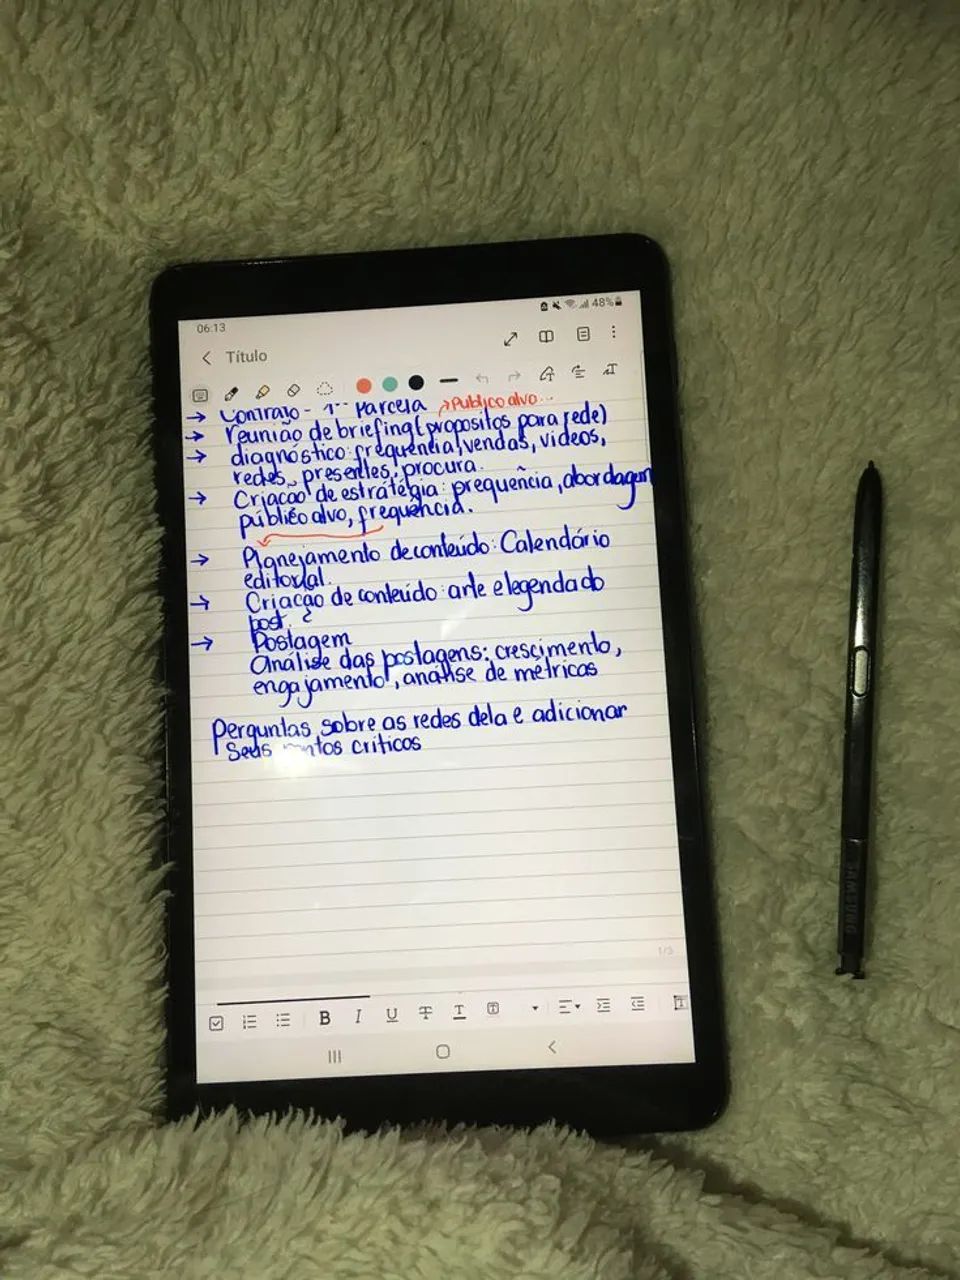 06:13
48%
Título
→ Contrato - 1ª Parcela → Publico alvo...
→ reunião de briefing (propositos para rede)
→ diagnóstico: frequência, vendas, videos,
redes, presentes, procura.
→ Criacão de estratégia: prequência, abordagun
público alvo, frequência.
→ Planejamento de conteúdo: Calendário
editorial.
→ Criação de conteúdo: arte e legenda do
post.
→ Postagem
Análise das postagens: crescimento,
engajamento, analise de métricas
Perguntas sobre as redes dela e adicionar
Seus críticos
1/3
B I U T T T
SAMSUNG